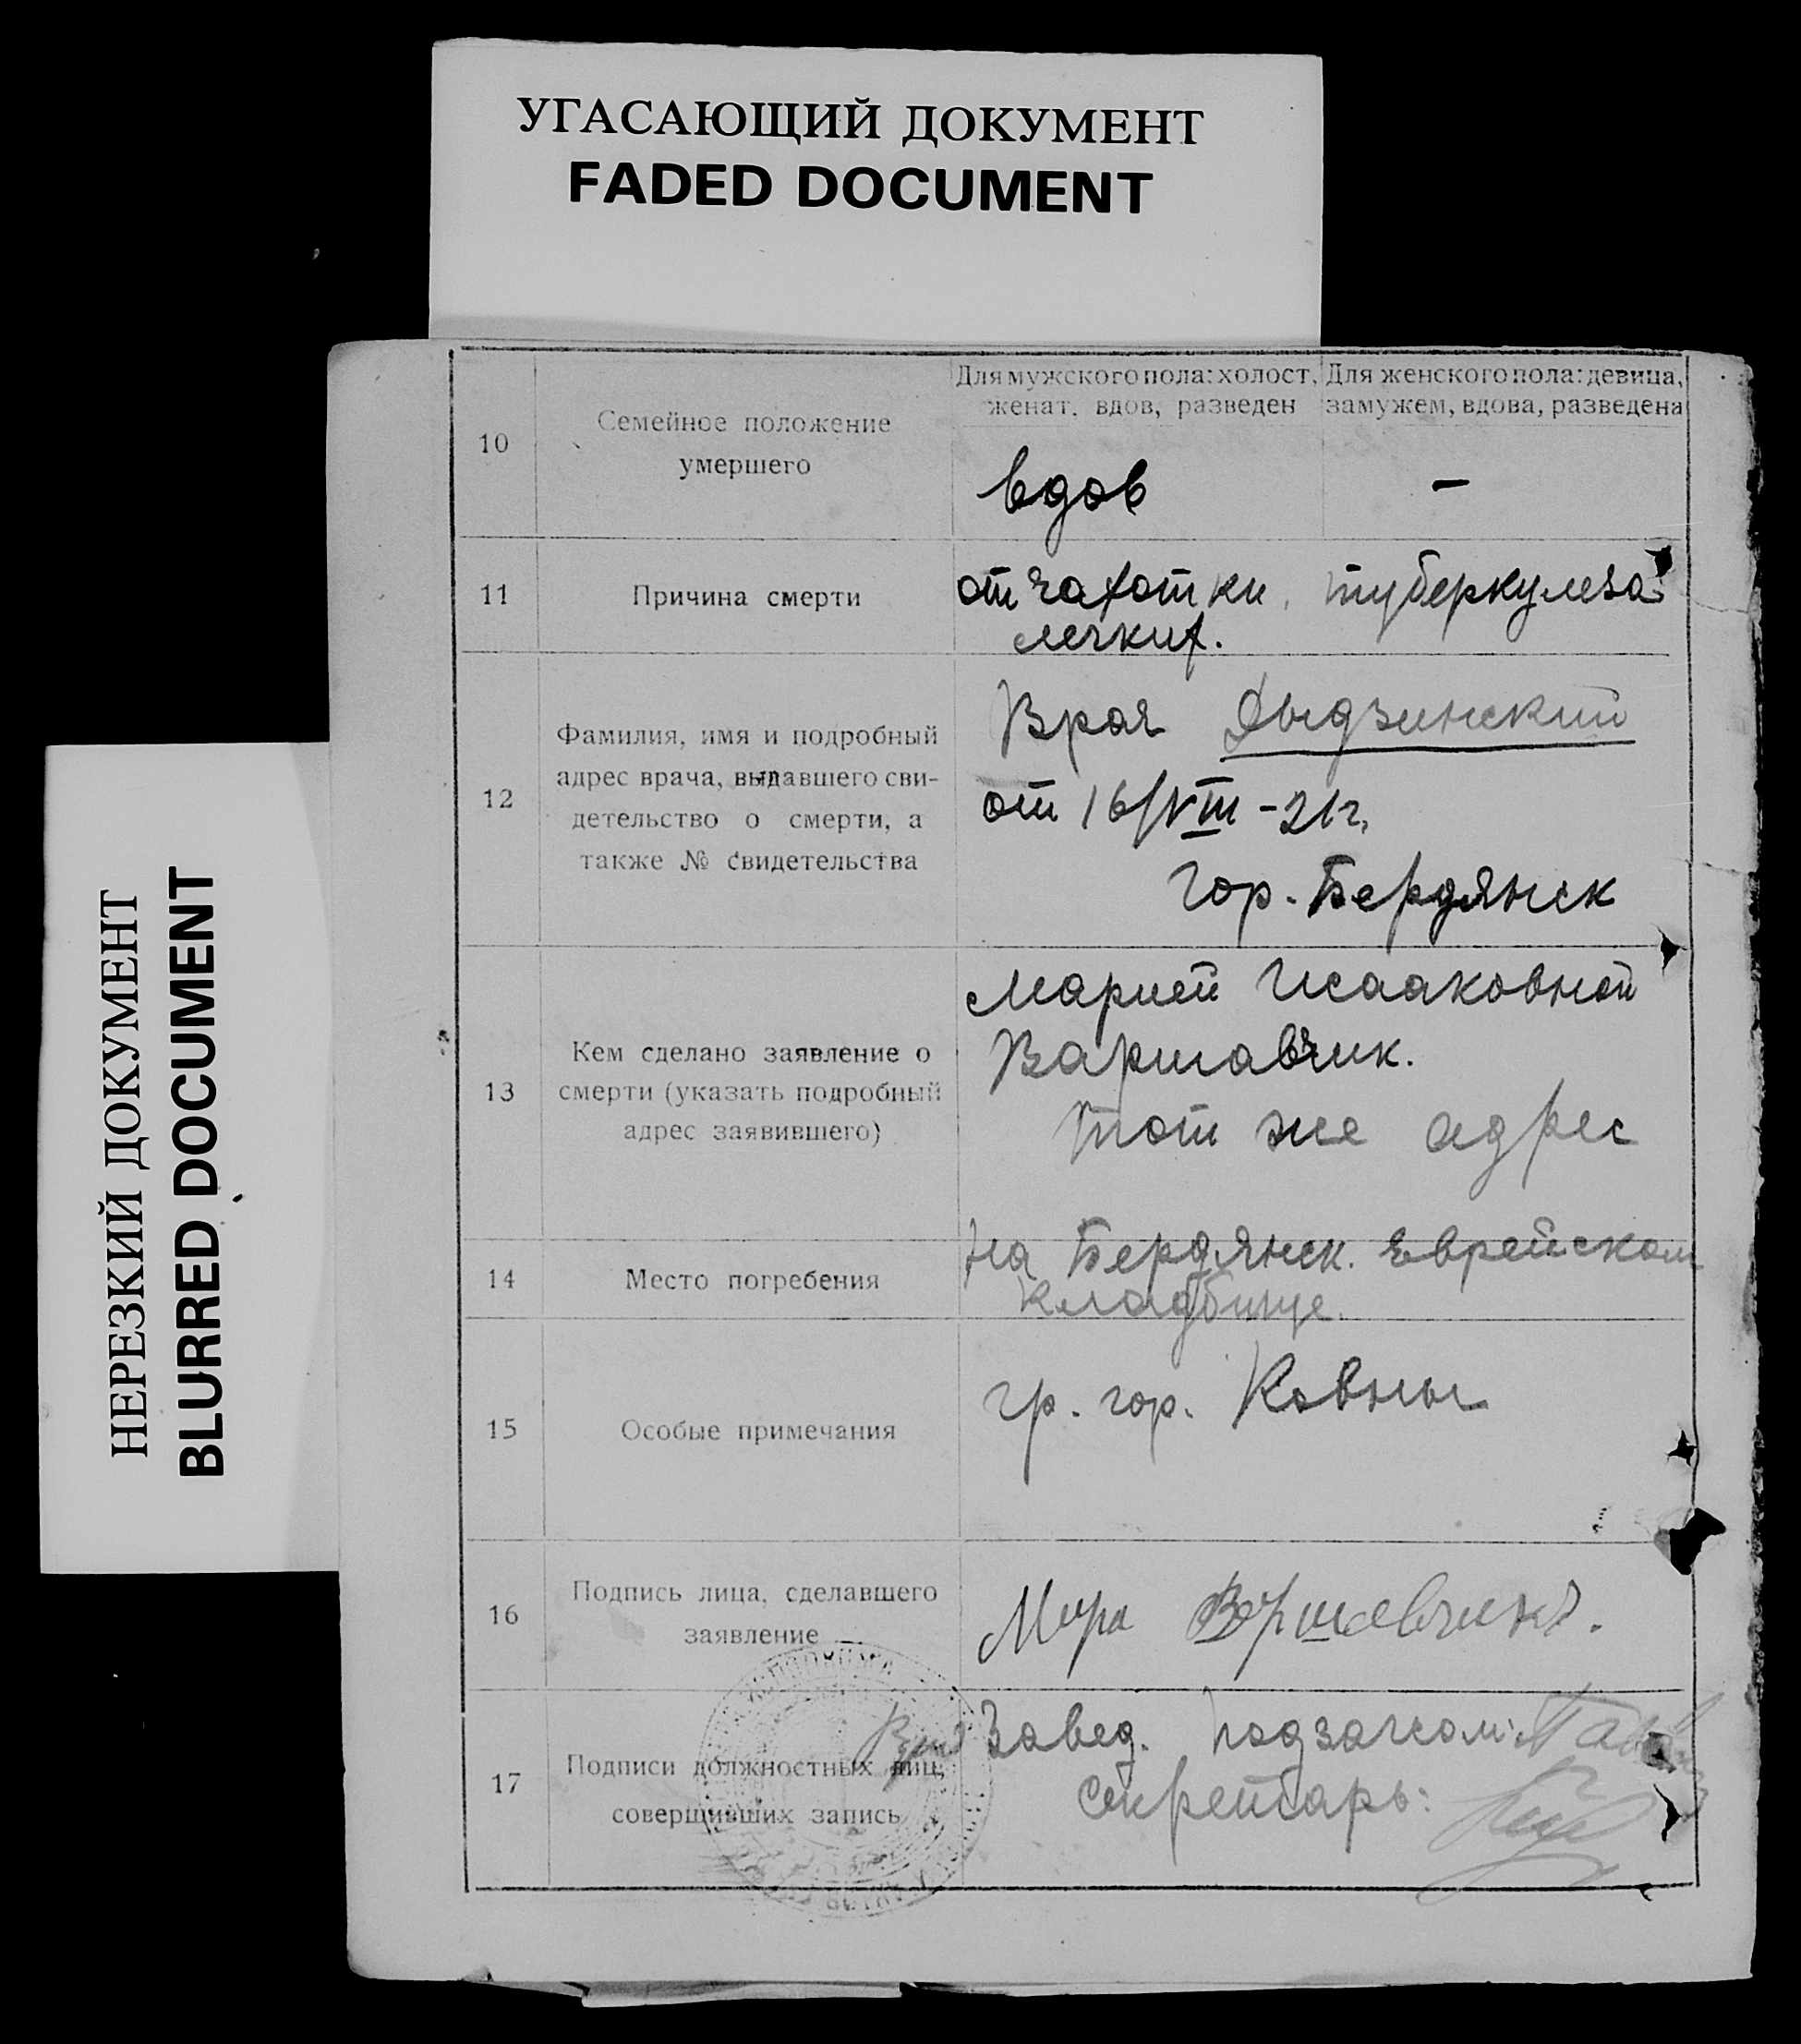 УГАСАЮЩИЙ ДОКУМЕНТ
FADED DOCUMENT
НЕРЕЗКИЙ ДОКУМЕНТ
BLURRED DOCUMENT
10
Семейное положение
умершего
Для мужского пола: холост,
женат, вдов, разведен
Для женского пола: девица,
замужем, вдова, разведена
вдов
—
11
Причина смерти
от чахотки, туберкулеза
легких.
12
Фамилия, имя и подробный
адрес врача, выдавшего сви-
детельство о смерти, а
также № свидетельства
Врач Дыдзинский
от 16/VIII - 21 г.
гор. Бердянск
13
Кем сделано заявление о
смерти (указать подробный
адрес заявившего)
Марией Исааковной
Варшавчик.
тот же адрес
14
Место погребения
на Бердянск. Еврейском
кладбище.
15
Особые примечания
гр. гор. Ковны
16
Подпись лица, сделавшего
заявление
Мера Варшавчикъ.
17
Подписи должностных лиц,
совершивших запись
Завед. Подзагсом:
Секретарь: